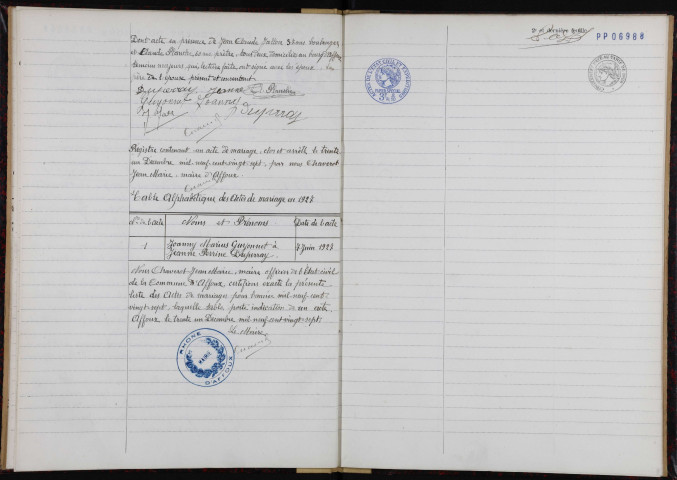 Dont acte en présence de Jean Claude 38 ans boulanger
et Claude Planche, prêtre, tous deux domiciliés au bourg d'Affoux
témoins majeurs, qui, lecture faite ont signé avec les époux, la
mère de l'épouse présente et consentant
Duperray Jeanne C. Planche
Guyonnet Joanny
Duperray
Registre contenant un acte de mariage, clos et arrêté le trente
un Décembre mil neuf cent vingt sept, par nous Chaverot
Jean Marie, maire d'Affoux.
Table Alphabétique des Actes de mariage en 1927
N° de l'acte Noms et Prénoms Date de l'acte
1 Joanny Marius Guyonnet à 7 Juin 1927
Jeanne Perrine Duperray
Nous Chaverot Jean Marie, maire officier de l'État civil
de la Commune d'Affoux certifions exacte la présente
liste des Actes de mariages pour l'année mil neuf cent
vingt sept, laquelle table, porte indication de un acte
Affoux, le trente un Décembre mil neuf cent vingt sept.
Le Maire
MAIRIE
D'AFFOUX
RHÔNE
2e et dernière feuille
PP06980